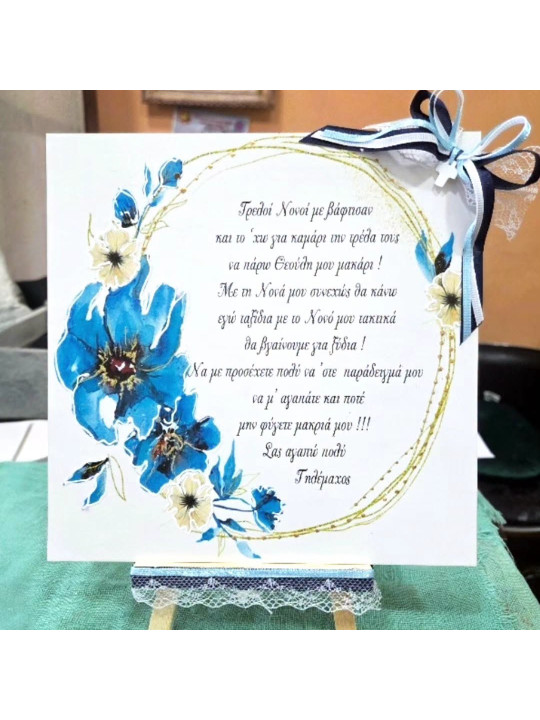 Τρελοί Νονοί με βάφτισαν
και το 'χω για καμάρι την τρέλα τους
να πάρω Θεούλη μου μακάρι !
Με τη Νονά μου συνεχώς θα κάνω
εγώ ταξίδια με το Νονό μου τακτικά
θα βγαίνουμε για ξύδια !
Να με προσέχετε πολύ να 'στε παράδειγμά μου
να μ' αγαπάτε και ποτέ
μην φύγετε μακριά μου !!!
Σας αγαπώ πολύ
Τηλέμαχος